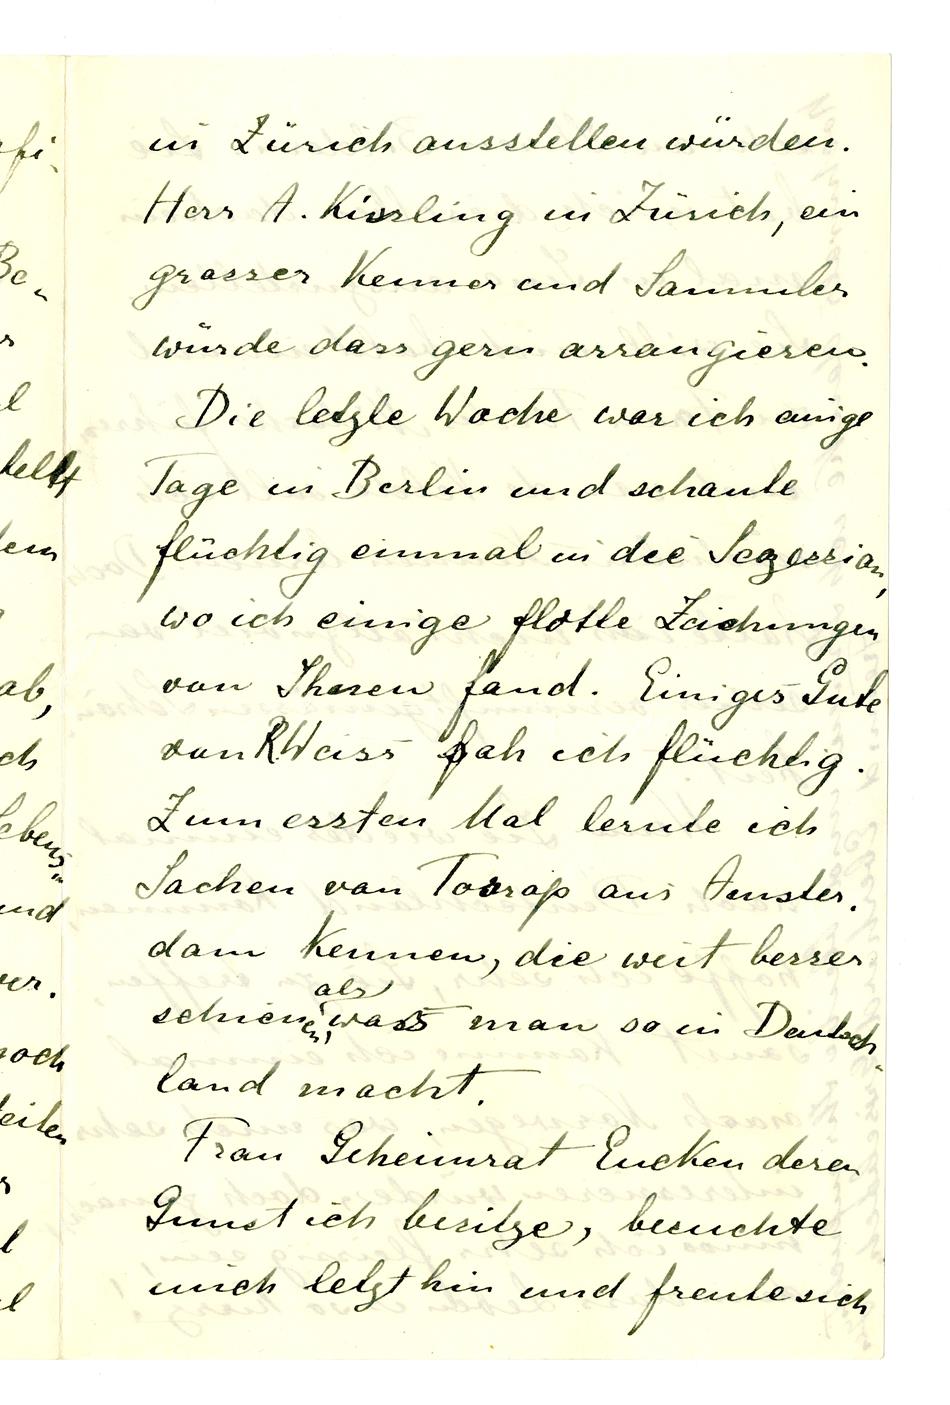 in Zürich ausstellen würden.
Herr A. Kissling in Zürich, ein
grosser Kenner und Sammler
würde dass gern arrangieren.
Die letzte Woche war ich einige
Tage in Berlin und schaute
flüchtig einmal in die Sezession,
wo ich einige flotte Zeichnungen
von Ihnen fand. Einiges Gute
von R Weiss sah ich flüchtig.
Zum ersten Mal lernte ich
Sachen von Toorop aus Amster-
dam kennen, die weit besser
schienen, als was man so in Deutsch-
land macht.
Frau Geheimrat Eucken deren
Gunst ich besitze, besuchte
mich letzthin und freute sich